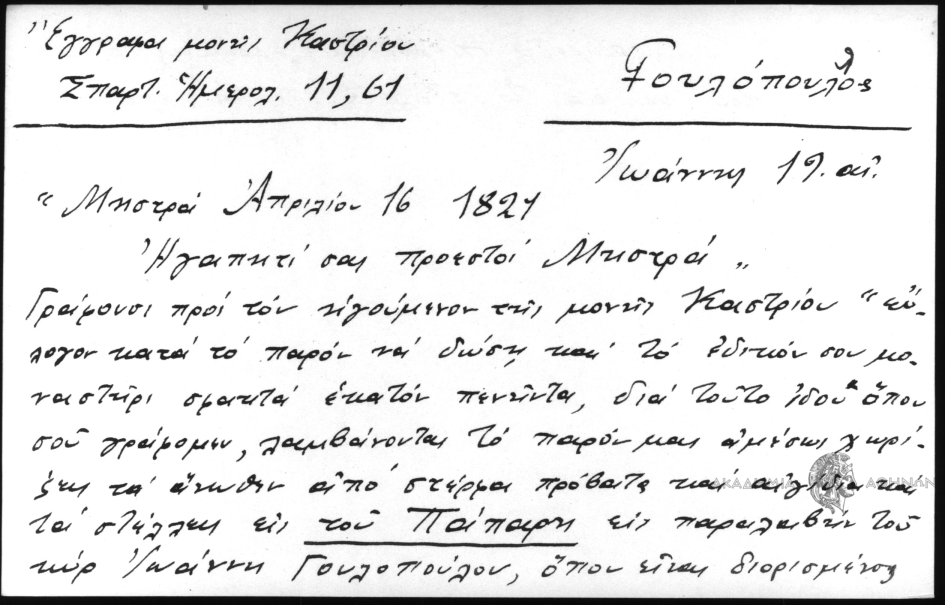 "Έγγραφα μονῆς Καστρίου
Σπαρτ. Ἡμερολ. 11, 61
Γουλόπουλος
Ἰωάννης 19. αἰ.
"Μηστρά Ἀπριλίου 16 1821
Ἠγαπητί σας προεστοί Μηστρά"
Γράφουσι πρός τόν ηγούμενον τῆς μονῆς Καστρίου "εὔ-
λογον κατά τό παρόν νά δώσῃ καί τό ἐδικόν σου μο-
ναστήρι σφακτά ἑκατόν πενῆντα, διά τοῦτο ἰδού ὅπου
σοῦ γράφομεν, λαμβάνοντας τό παρόν μας ἀμέσως χωρί-
ζῃς τά ἄνωθεν ἀπό στέρφα πρόβατα καί αἰγίδια καί
τά στέλλῃς εἰς τοῦ Πάπαρη εἰς παραλαβήν τοῦ
κύρ Ἰωάννη Γουλοπούλου, ὅπου εἶναι διορισμένος
ΑΚΑΔΗΜΙΑ ΑΘΗΝΩΝ